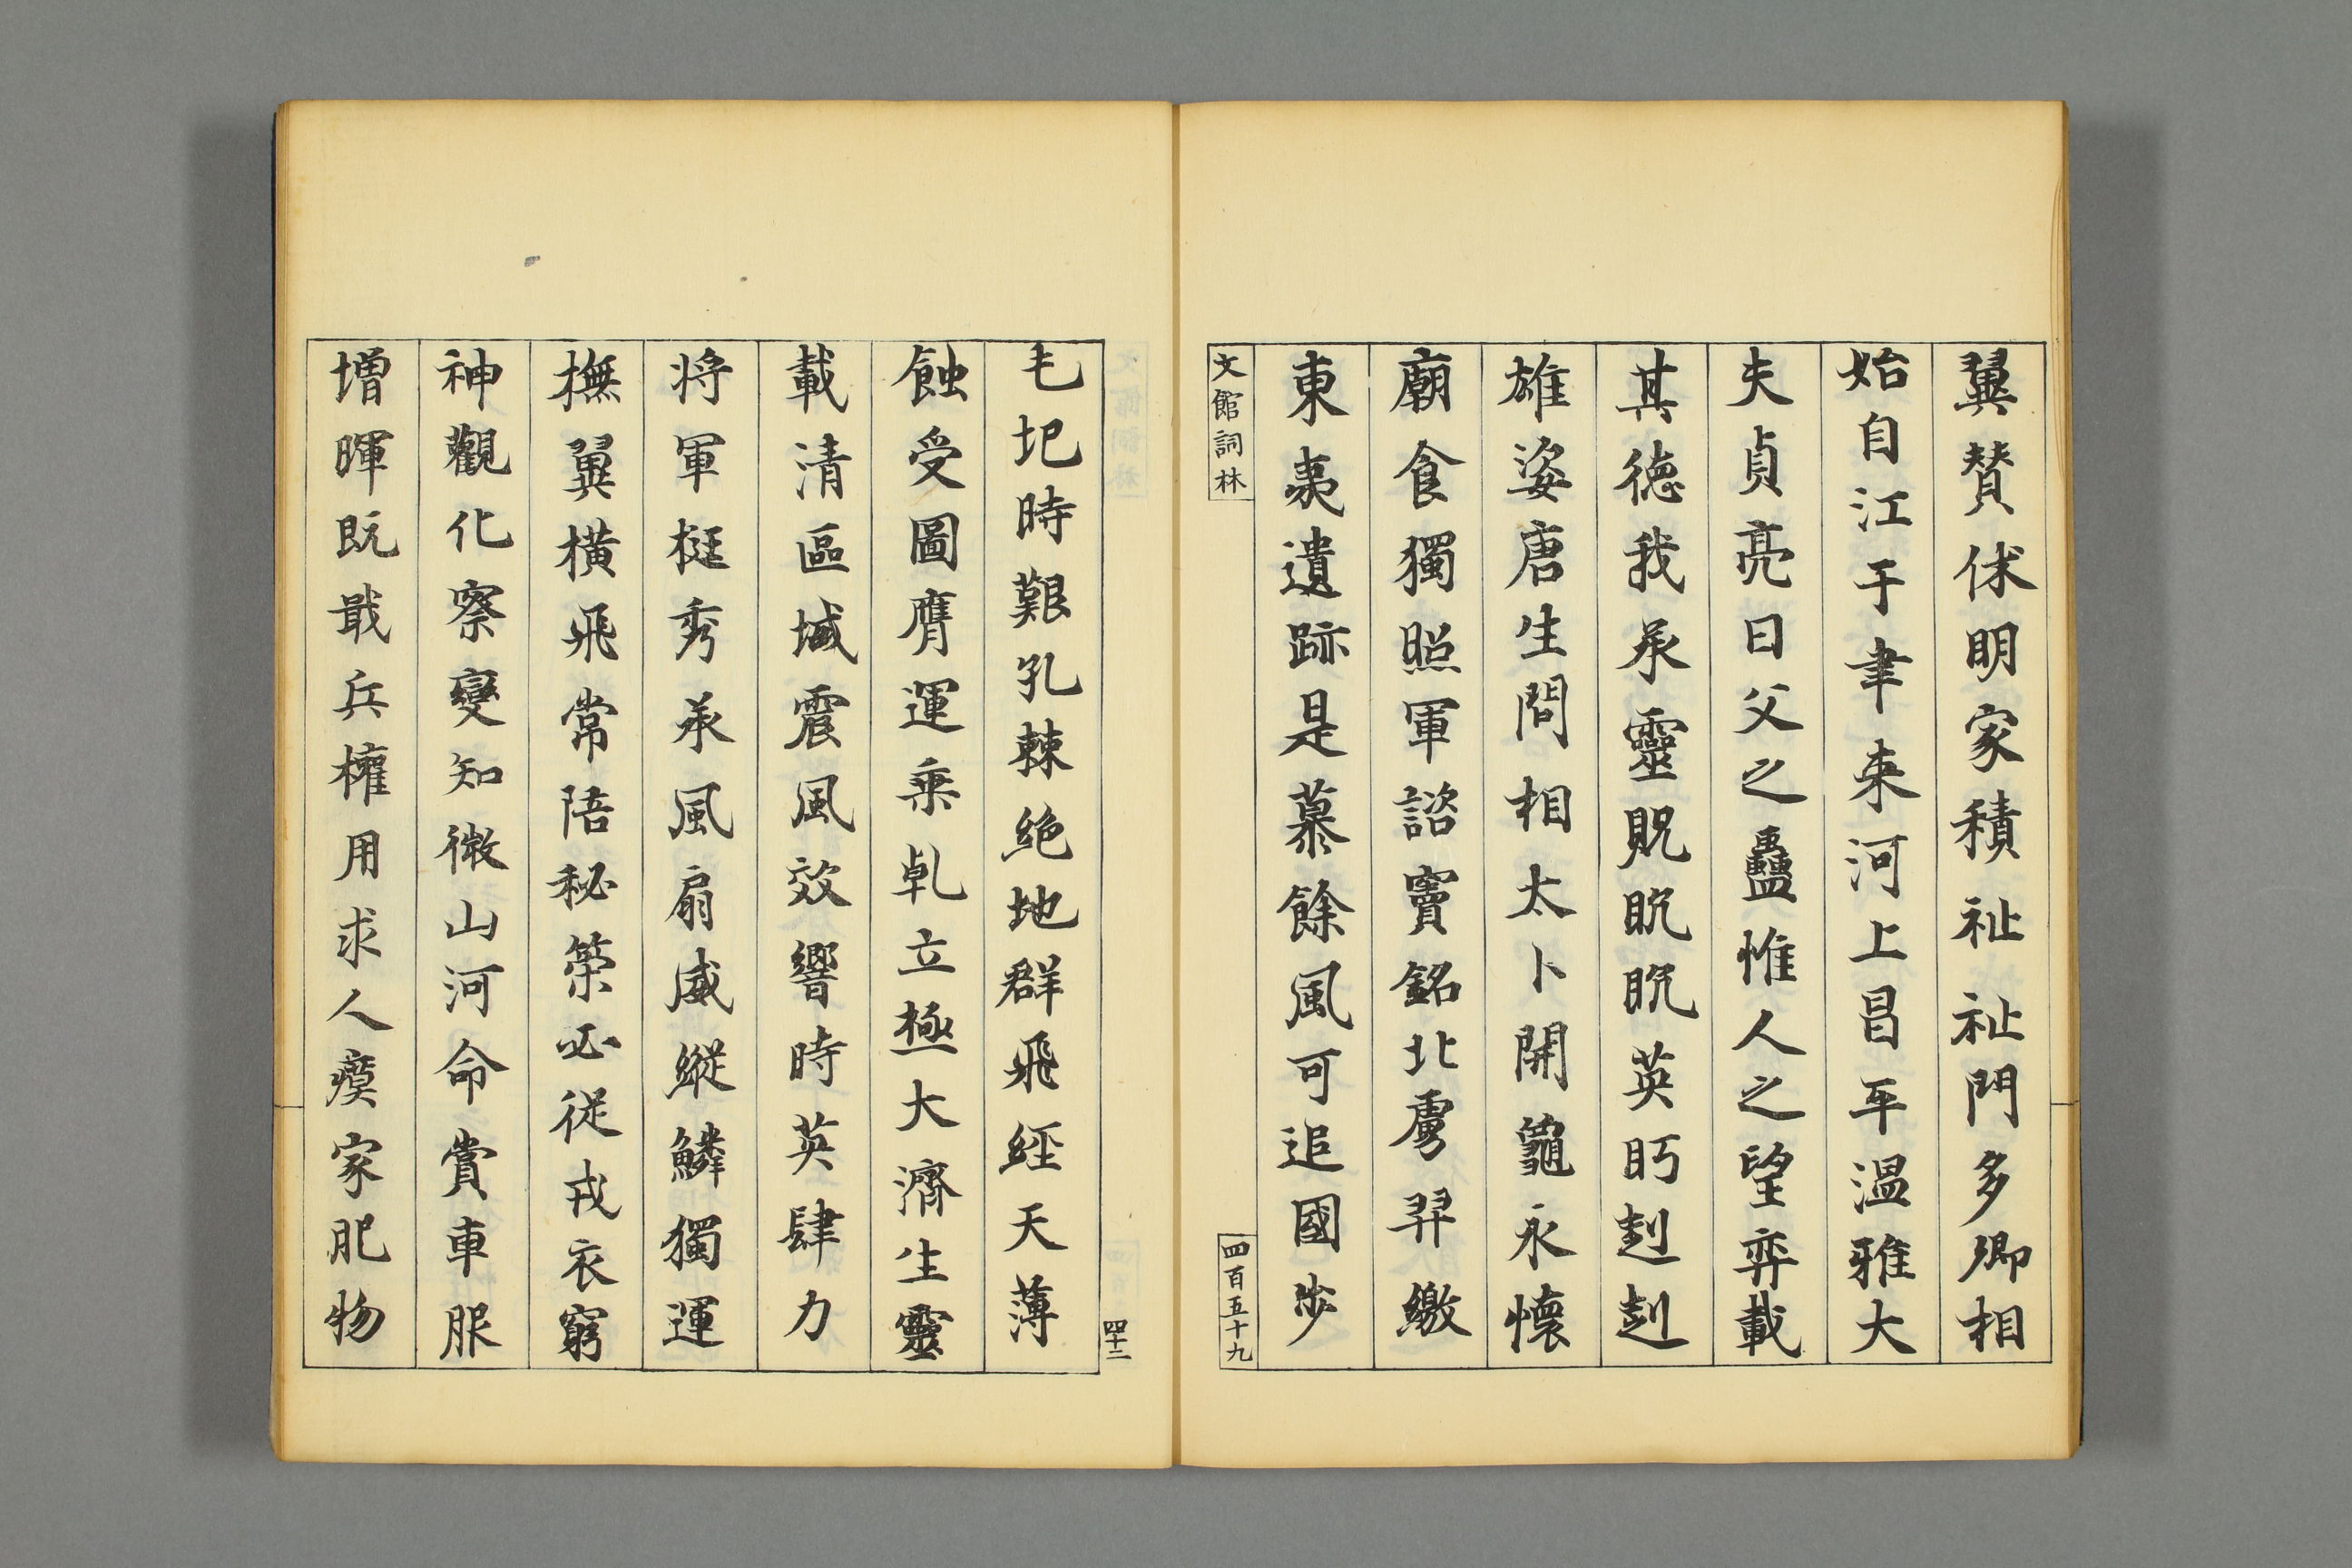 翼賛俅明家積祉祉門多卿相
始自江于聿来河上昌平温雅大
夫貞亮曰父之蠱惟人之望弈載
其徳我承靈貺眖眖英眄赳赳
雄姿唐生問相太卜開龜永懐
廟食獨照軍諮竇銘北虜羿繳
東夷遺跡是慕餘風可追國步
文館詞林
四百五十九
四十二
乇圯時艱孔棘絶地群飛経天薄
蝕受圖膺運乗乹立極大濟生靈
載清區域震風效響時英肆力
将軍挺秀承風扇威縦鱗獨運
撫翼横飛常陪秘策必従戎衣窮
神觀化察變知微山河命賞車服
増暉既戢兵權用求人瘼家肥物